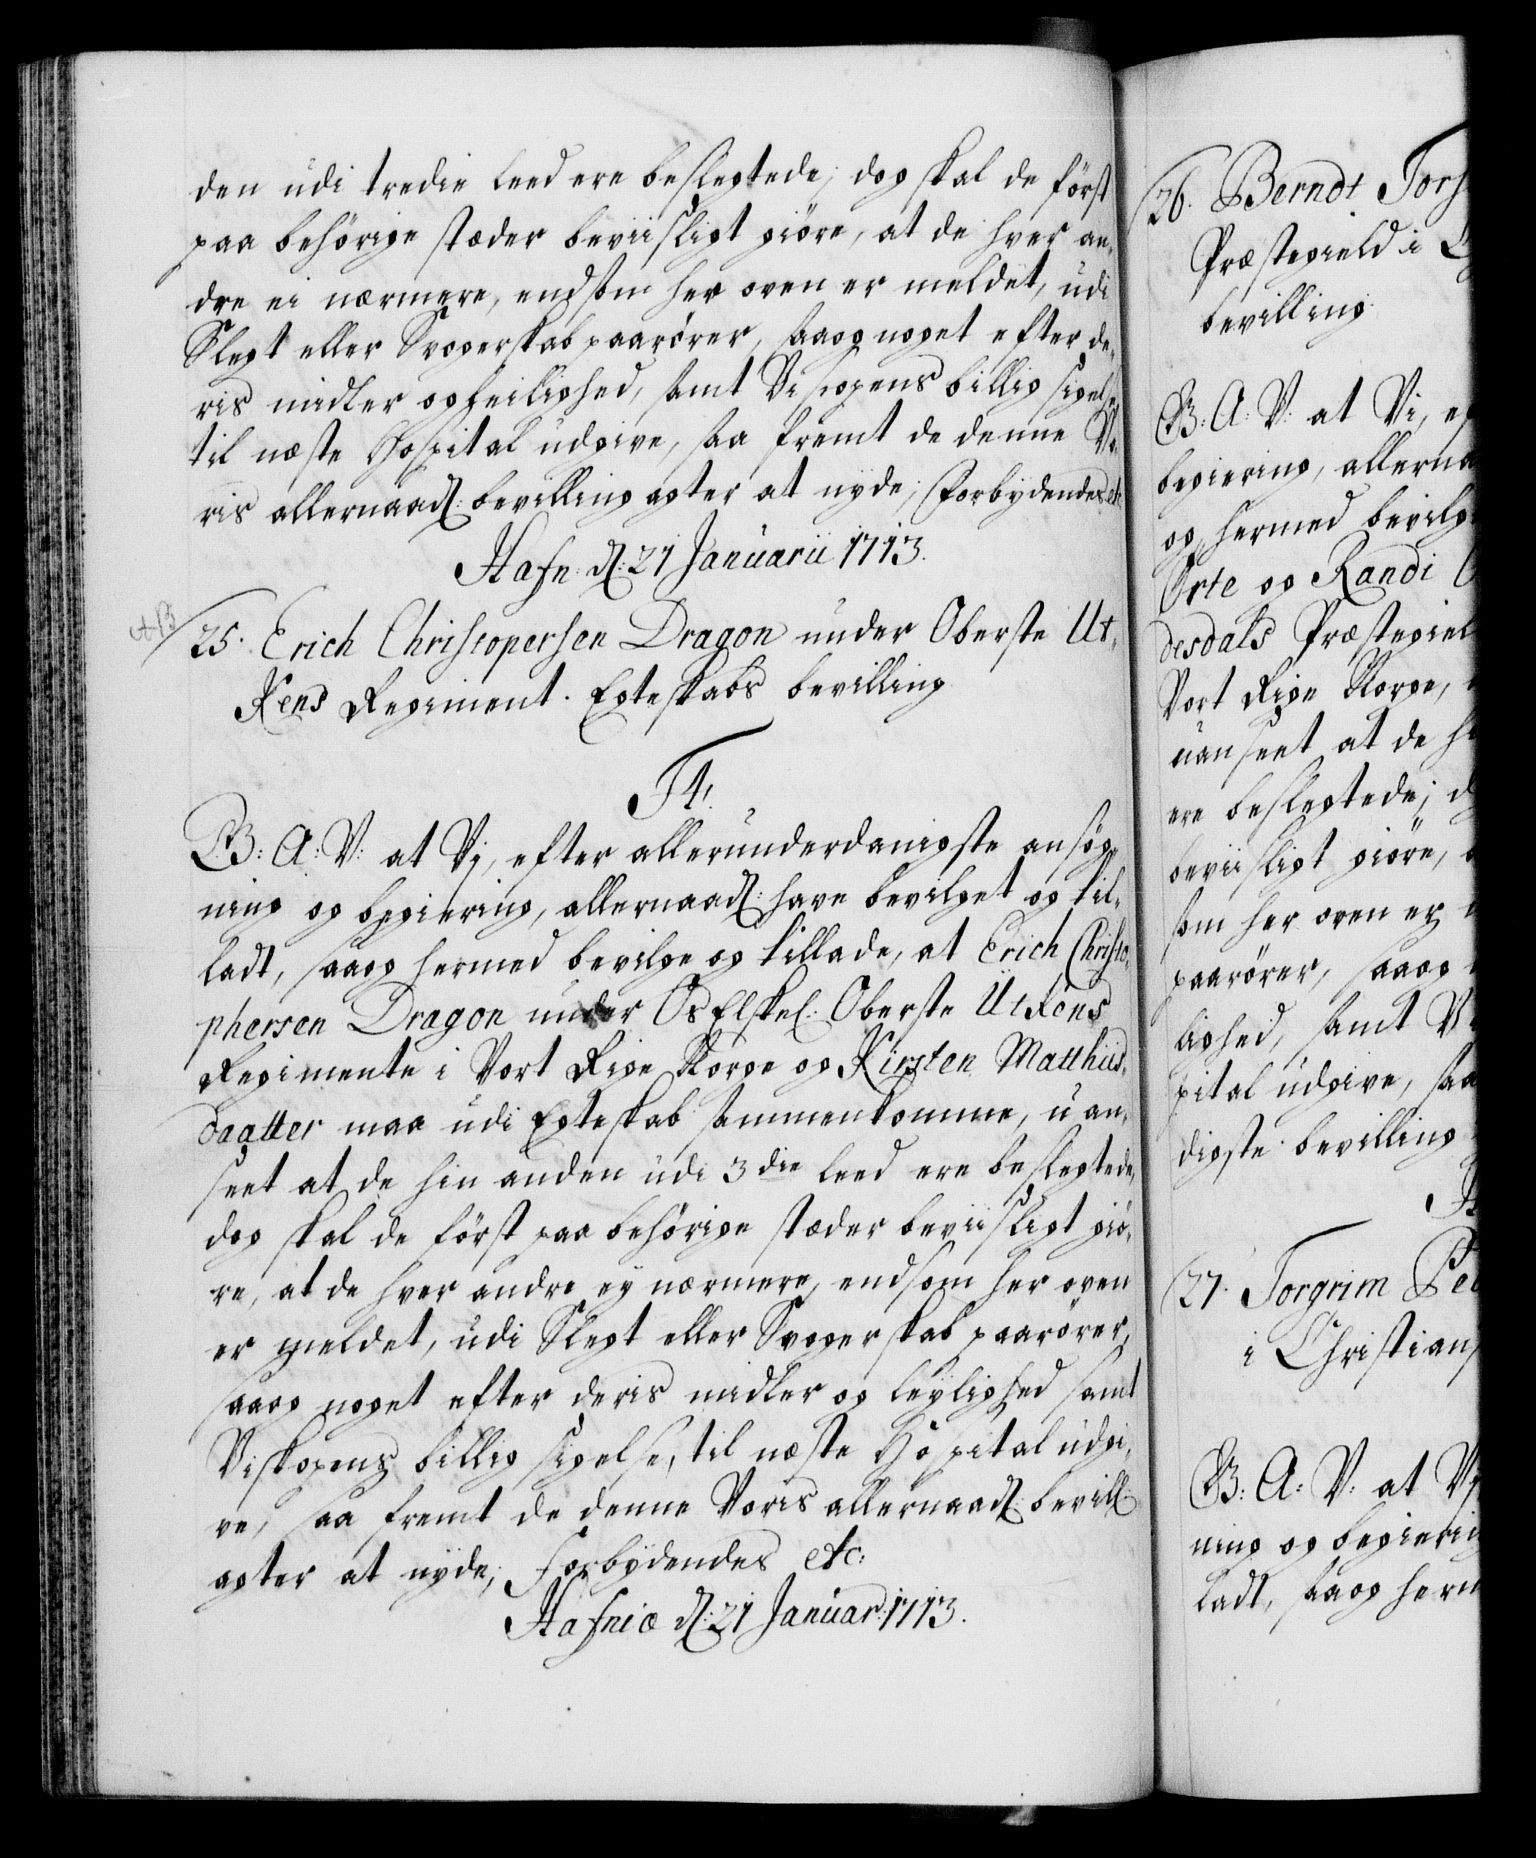 den udi tredie leed ere beslegtede, dog skal de först
paa behörige stæder beviisligt giöre, at de hver an-
dre ei nærmere, end som her oven er meldet, udi
Slegt eller Svogerskab paarörer, saa og noget efter de-
ris midler og leilighed, samt Bisopens billig sigel-
til næste Hospital udgive, saa fremt de denne Vo-
ris allernaad: bevilling agter at nyde; Forbydendes etc
Hafn: d: 21 Januarii 1713.
25. Erich Christopersen Dragon under Oberste Ut-
Kens Regiment. Egteskabs bevilling
F4.
G. B: A: V: at Vj, efter allerunderdanigste ansög-
ning og begiering, allernaad: have bevilget og til-
ladt, saa og hermed bevilge og tillade, at Erich Christo-
phersen Dragon under Os Elskel: Oberste ÜtKens
Regimente i Vort Rige Norge og Kirsten Matthiis-
daatter maa udi Egteskab sammenkomme, uan-
seet at de hin anden udi 3die leed ere beslegtede,
dog skal de först paa behörige stæder beviisligt giö-
re, at de hver andre ey nærmere, end som her oven
er meldet, udi Slegt eller Svogerskab paarörer,
saa og noget efter deris midler og leylighed samt
Biskopens billig sigelse, til næste Hospital udgi-
ve, saa fremt de denne Voris allernaad: bevill:
agter at nyde; Forbydendes etc:
Hafniæ d: 21 Januar: 1713.
26. Berndt Tors
Præstegield i
bevilling
G. B: A: V: at Vi, ef
begiering, allerna
og hermed bevilg
Orte og Randi
desdals Præstegiel
Vort Rige Norge,
uanseet at de h
ere beslegtede; d
beviisligt giöre,
som her oven er
paarörer, saa og
lighed, samt
pital udgive, saa
digste bevilling
27. Torgrim Pe
i Christians
G. B: A: V: at Vj
ning og begierin
ladt, saa og herm